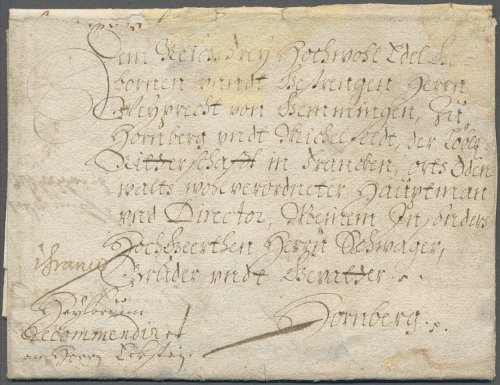 Dem Reichs frey Hochwohl Edel Ge-
bornen vundt Gestrengen Herrn
Weyprecht von Gemmingen, Zu
Hornberg vndt Michelfeldt, der Löbl:
Ritterschafft in Francken, orts Oden
waldts wohlverordneter Hauptman
vnd Director, Meinem Insonders
Hochgeerthen Herrn Schwager,
Bruder vndt Gevatter.
franco
Heylbronn
Recommendiret
an Herrn Eckstein
Hornberg.